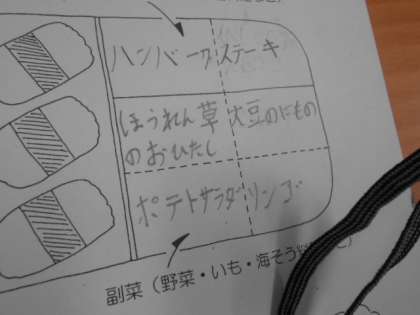 ハンバーグステーキ
ほうれん草 大豆のにもの
のおひたし
ポテトサラダ リンゴ
副菜(野菜・いも・海そう